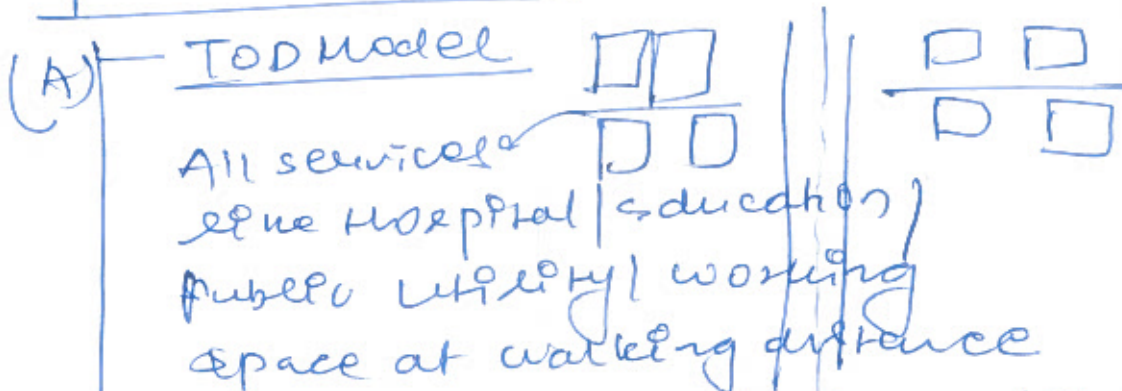 (A) TOD Model
All services
like Hospital | education |
Public Utility | working
space at walking distance